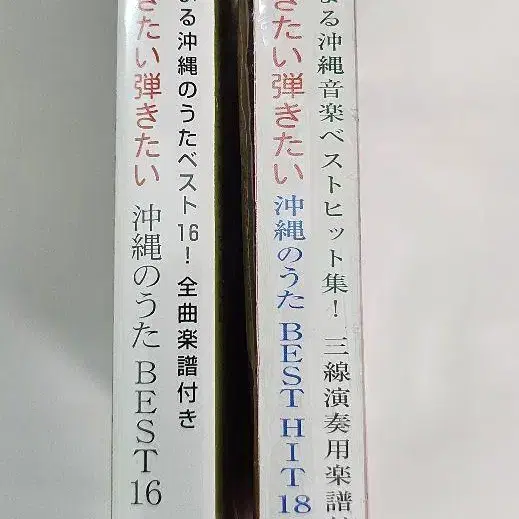 る沖縄のうたベスト16！全曲楽譜付き
きたい弾きたい 沖縄のうた BEST16
る沖縄音楽ベストヒット集！三線演奏用楽譜
きたい弾きたい 沖縄のうた BEST HIT 18